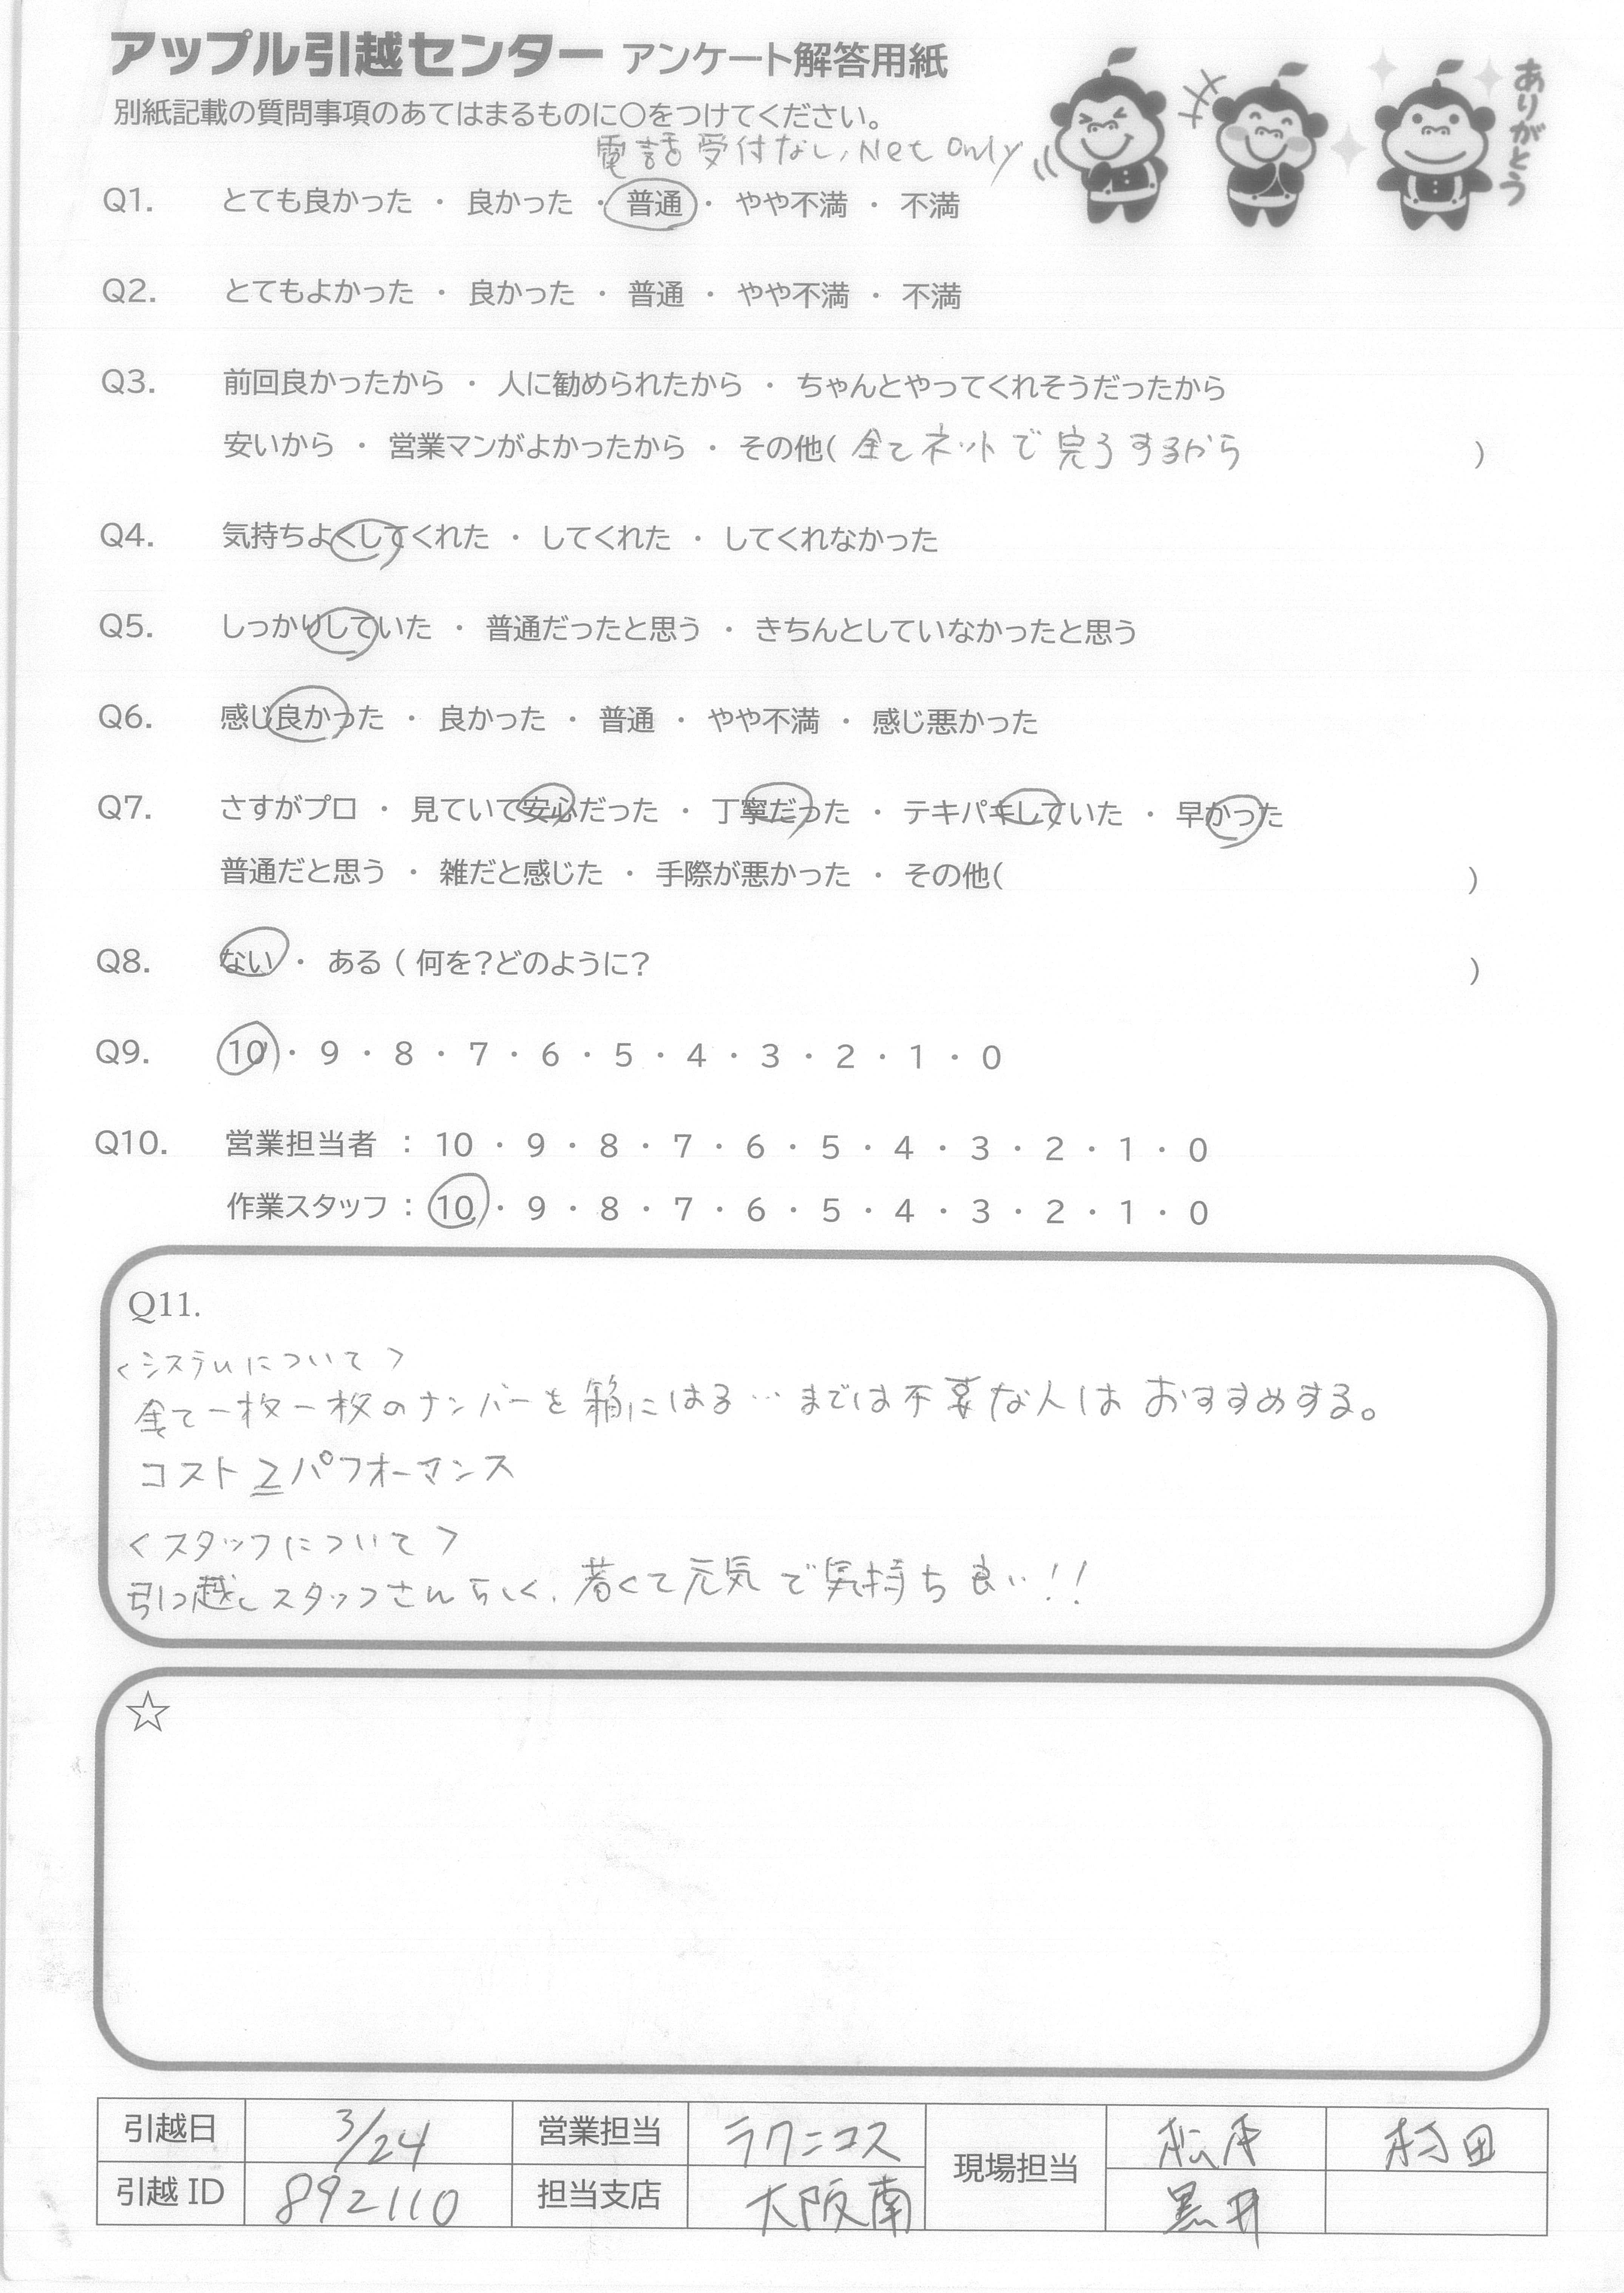 アップル引越センター アンケート解答用紙
別紙記載の質問事項のあてはまるものに○をつけてください。
電話受付なし、Net Only
ありがとう
Q1. とても良かった ・ 良かった ・ 普通 ・ やや不満 ・ 不満
Q2. とてもよかった ・ 良かった ・ 普通 ・ やや不満 ・ 不満
Q3. 前回良かったから ・ 人に勧められたから ・ ちゃんとやってくれそうだったから
安いから ・ 営業マンがよかったから ・ その他( 全てネットで完了するから )
Q4. 気持ちよくしてくれた ・ してくれた ・ してくれなかった
Q5. しっかりしていた ・ 普通だったと思う ・ きちんとしていなかったと思う
Q6. 感じ良かった ・ 良かった ・ 普通 ・ やや不満 ・ 感じ悪かった
Q7. さすがプロ ・ 見ていて安心だった ・ 丁寧だった ・ テキパキしていた ・ 早かった
普通だと思う ・ 雑だと感じた ・ 手際が悪かった ・ その他( )
Q8. ない ・ ある ( 何を?どのように? )
Q9. 10 ・ 9 ・ 8 ・ 7 ・ 6 ・ 5 ・ 4 ・ 3 ・ 2 ・ 1 ・ 0
Q10. 営業担当者 : 10 ・ 9 ・ 8 ・ 7 ・ 6 ・ 5 ・ 4 ・ 3 ・ 2 ・ 1 ・ 0
作業スタッフ : 10 ・ 9 ・ 8 ・ 7 ・ 6 ・ 5 ・ 4 ・ 3 ・ 2 ・ 1 ・ 0
Q11.
<システムについて>
全て一枚一枚のナンバーを箱にはる…までは不要な人はおすすめする。
コスト≧パフォーマンス
<スタッフについて>
引っ越しスタッフさんらしく、若くて元気で気持ち良い!!
☆
引越日 3/24 営業担当 ラクニコス 現場担当 松本 村田
引越 ID 892110 担当支店 大阪南 黒井